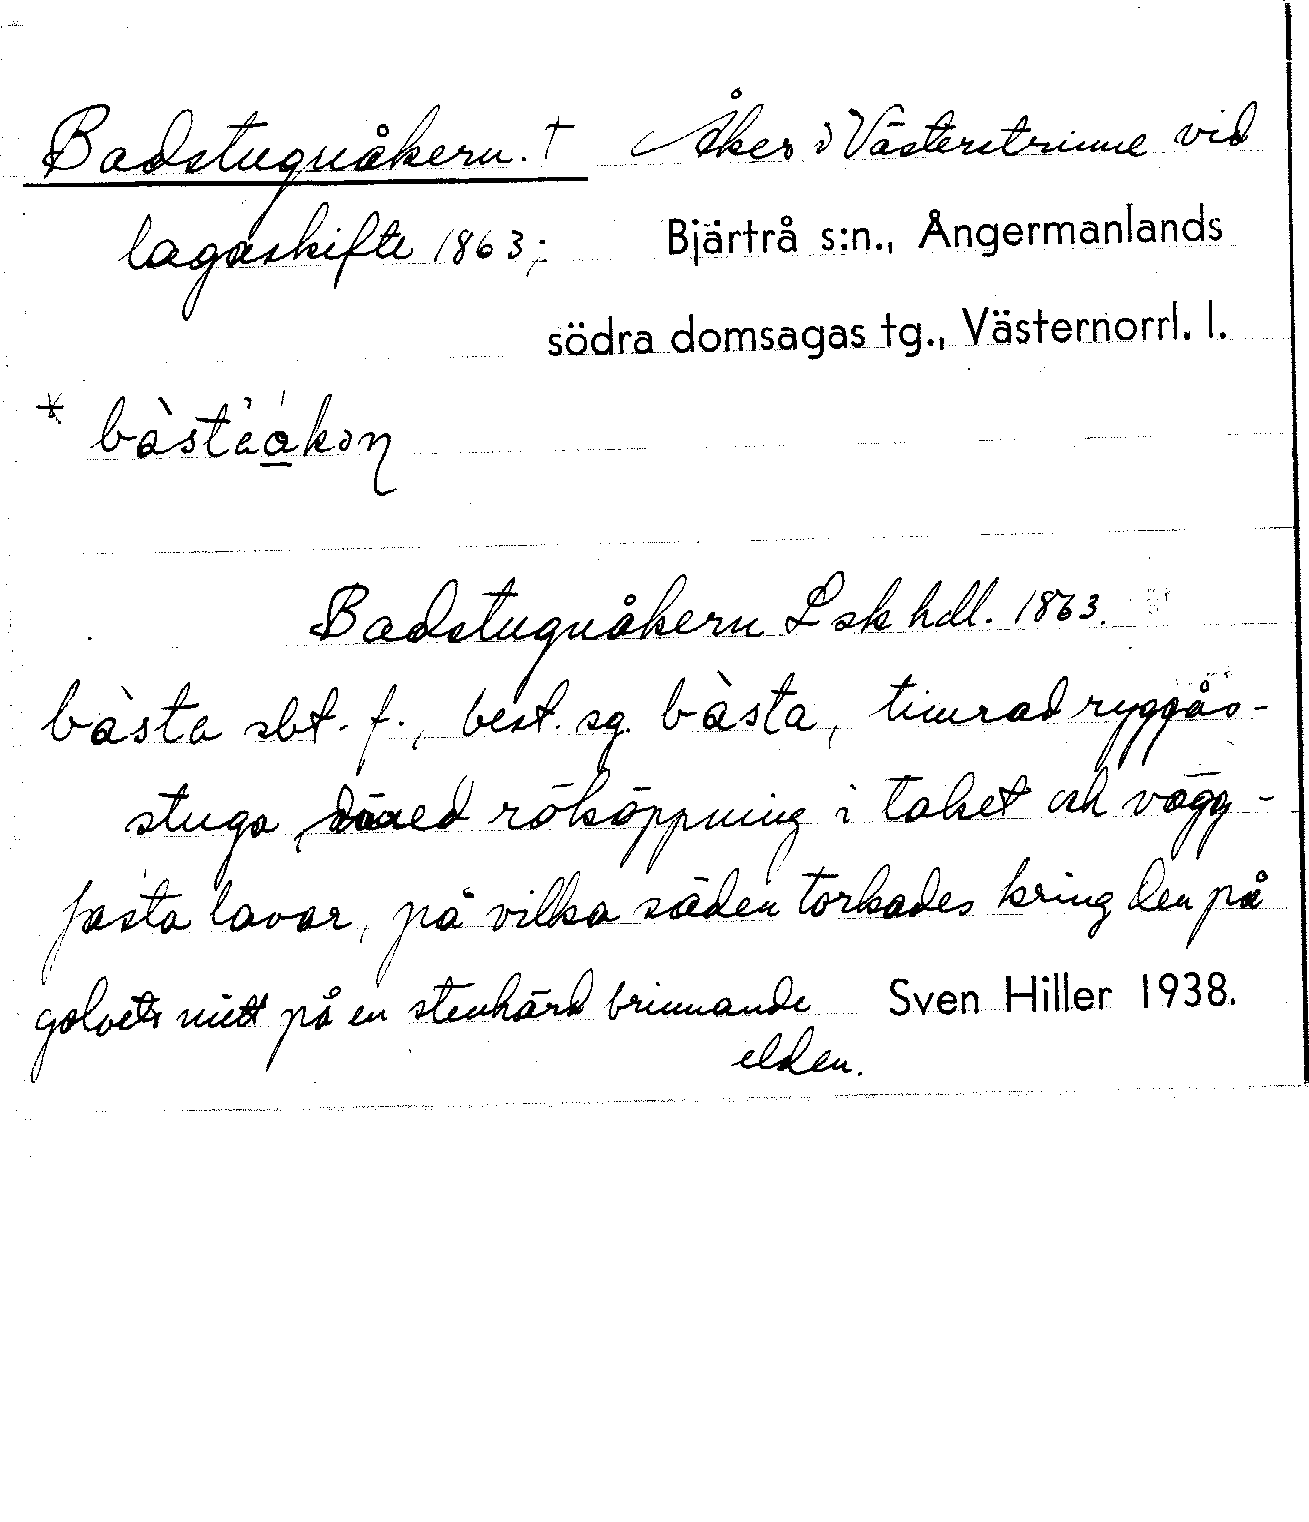 Badstuguåkern. † Åker i Västerstrinne vid
lagaskifte 1863; Bjärtrå s:n., Ångermanlands
södra domsagas tg., Västernorrl. l.
* bàsta̍å̱kən
Badstuguåkern L sk hdl. 1863.
bàsta sbt. f., best. sg. bàsta, timrad ryggås-
stuga med rököppning i taket och vägg-
fasta lavar, på vilka säden torkades kring den på
golvets mitt på en stenhärd brinnande Sven Hiller 1938.
elden.